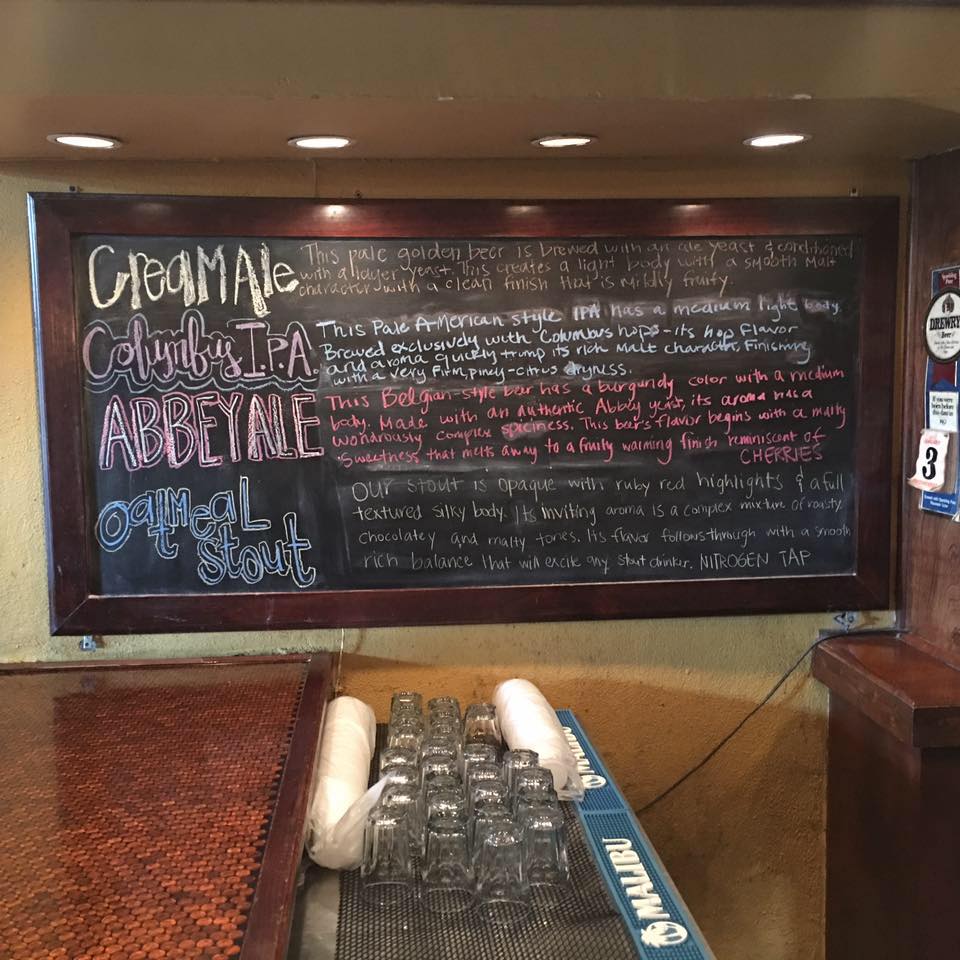 CreaM Ale
This pale golden beer is brewed with an ale yeast & conditioned
with a lager yeast. This creates a light body with a smooth malt
character with a clean finish that is mildly fruity.
Columbus I.P.A.
This Pale American style IPA has a medium light body.
Brewed exclusively with Columbus hops - its hop flavor
and aroma quickly trump its rich malt character, Finishing
with a very firm, piney-citrus dryness.
ABBEY ALE
This Belgian-style beer has a burgundy color with a medium
body. Made with an authentic Abbey yeast, its aroma has a
wondrously complex spiciness. This beer's flavor begins with a malty
sweetness that melts away to a fruity warming finish reminiscent of
CHERRIES
Oatmeal
Stout
OUR stout is opaque with ruby red highlights & a full
textured silky body. Its inviting aroma is a complex mixture of roasty
chocolatey and malty tones. Its flavor follows through with a smooth
rich balance that will excite any stout drinker. NITROGEN TAP
DREWRYS
Beer
If you were
born before
this date in
3
MALIBU
MALIBU